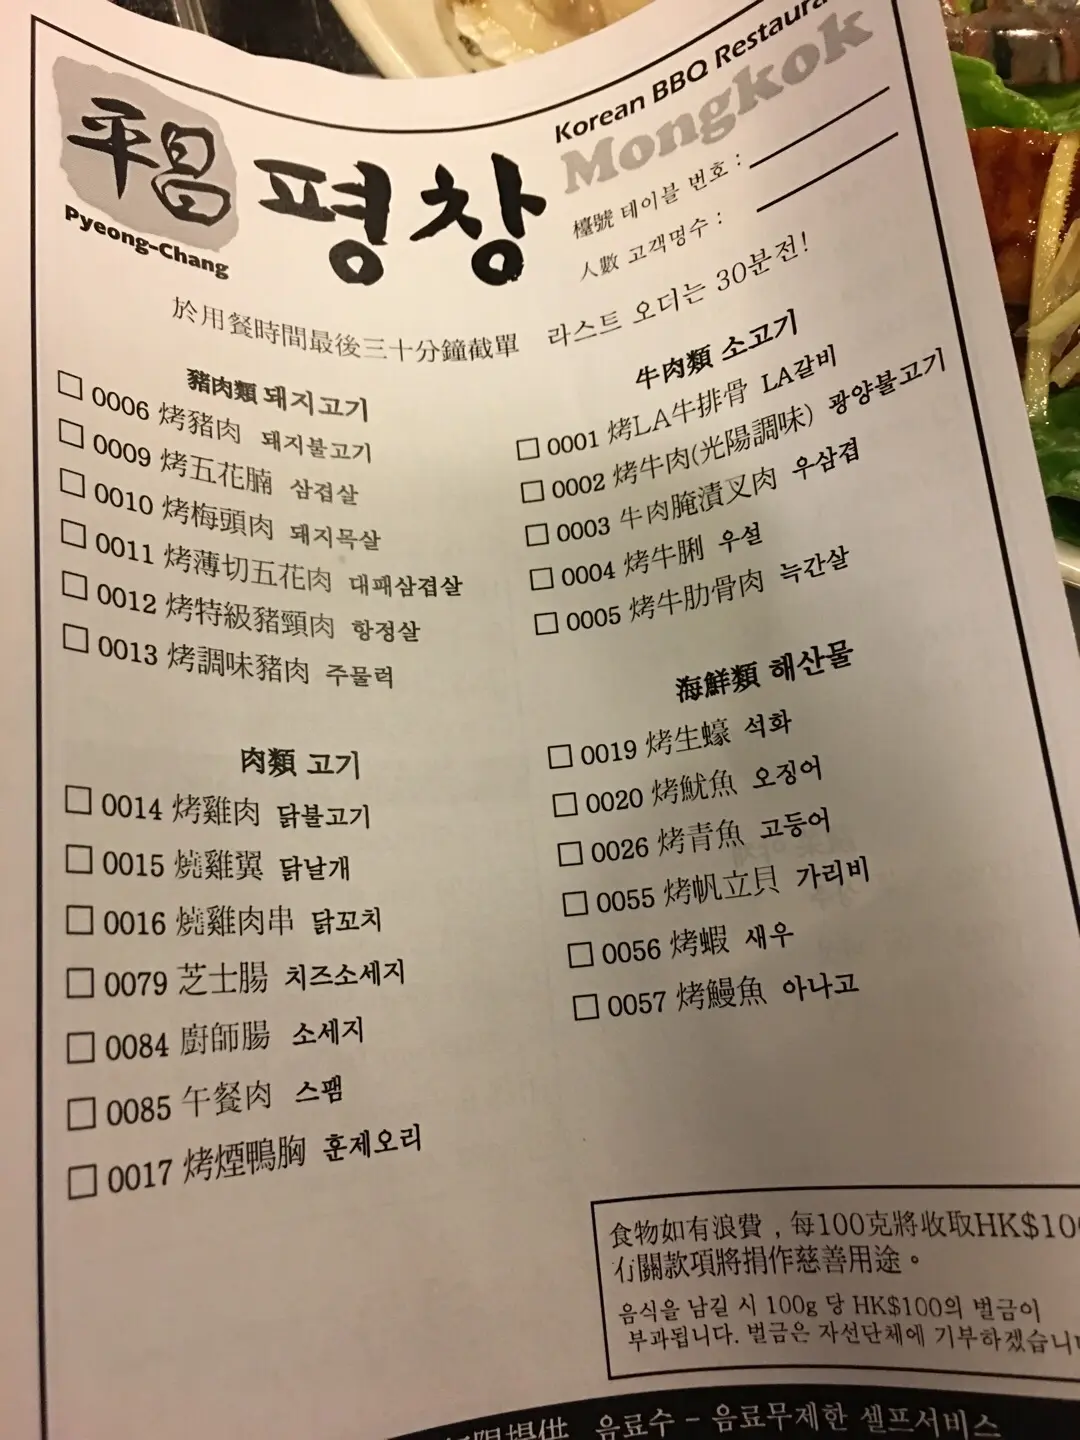 平昌
Pyeong-Chang
평창
Korean BBQ
Mongkok
檯號 테이블 번호 :
人數 고객명수 :
於用餐時間最後三十分鐘截單 라스트 오더는 30분전!
豬肉類 돼지고기
0006 烤豬肉 돼지불고기
0009 烤五花腩 삼겹살
0010 烤梅頭肉 돼지목살
0011 烤薄切五花肉 대패삼겹살
0012 烤特級豬頸肉 항정살
0013 烤調味豬肉 주물럭
肉類 고기
0014 烤雞肉 닭불고기
0015 燒雞翼 닭날개
0016 燒雞肉串 닭꼬치
0079 芝士腸 치즈소세지
0084 廚師腸 소세지
0085 午餐肉 스팸
0017 烤煙鴨胸 훈제오리
牛肉類 소고기
0001 烤LA牛排骨 LA갈비
0002 烤牛肉(光陽調味) 광양불고기
0003 牛肉腌漬叉肉 우삼겹
0004 烤牛脷 우설
0005 烤牛肋骨肉 늑간살
海鮮類 해산물
0019 烤生蠔 석화
0020 烤魷魚 오징어
0026 烤青魚 고등어
0055 烤帆立貝 가리비
0056 烤蝦 새우
0057 烤鰻魚 아나고
食物如有浪費，每100克將收取
關款項將捐作慈善用途。
음식을 남길 시 100g 당 HK$100의 벌금이
부과됩니다. 벌금은 자선단체에
음료수 - 음료무제한 셀프서비스